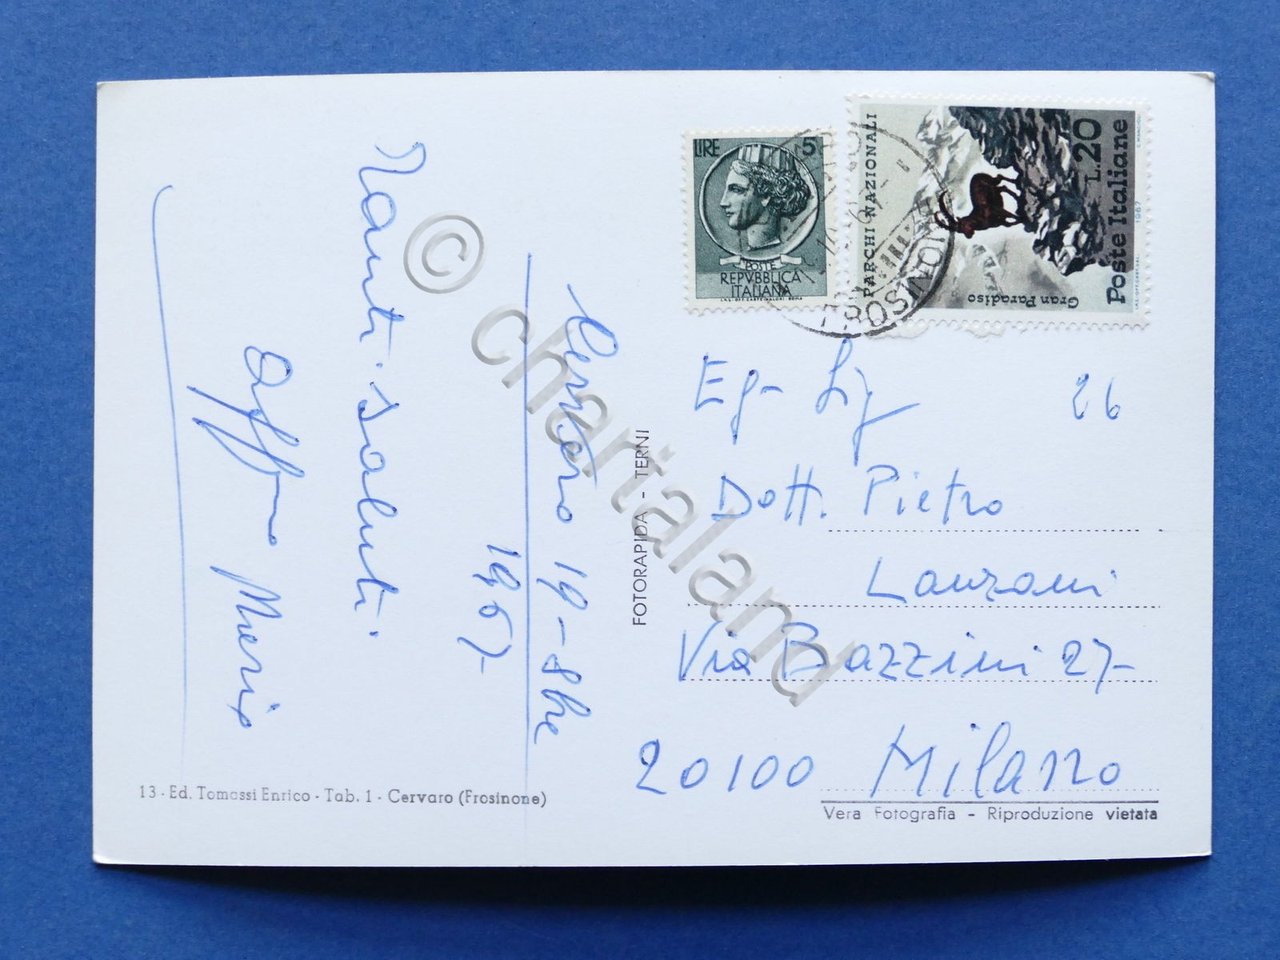 Cervaro 19-8bre
1967-
Tanti saluti.
Aff.mo Mario
Eg- Sig
26
Dott. Pietro
Lanzani
Via Bazzini 27-
20100 Milano
LIRE 5
POSTE
REPVBBLICA
ITALIANA
PARCHI NAZIONALI
Gran Paradiso
L.20
Poste Italiane
1967
FROSINONE
FOTORAPIDA - TERNI
13 - Ed. Tomassi Enrico - Tab. 1 - Cervaro (Frosinone)
Vera Fotografia - Riproduzione vietata
© chartaland